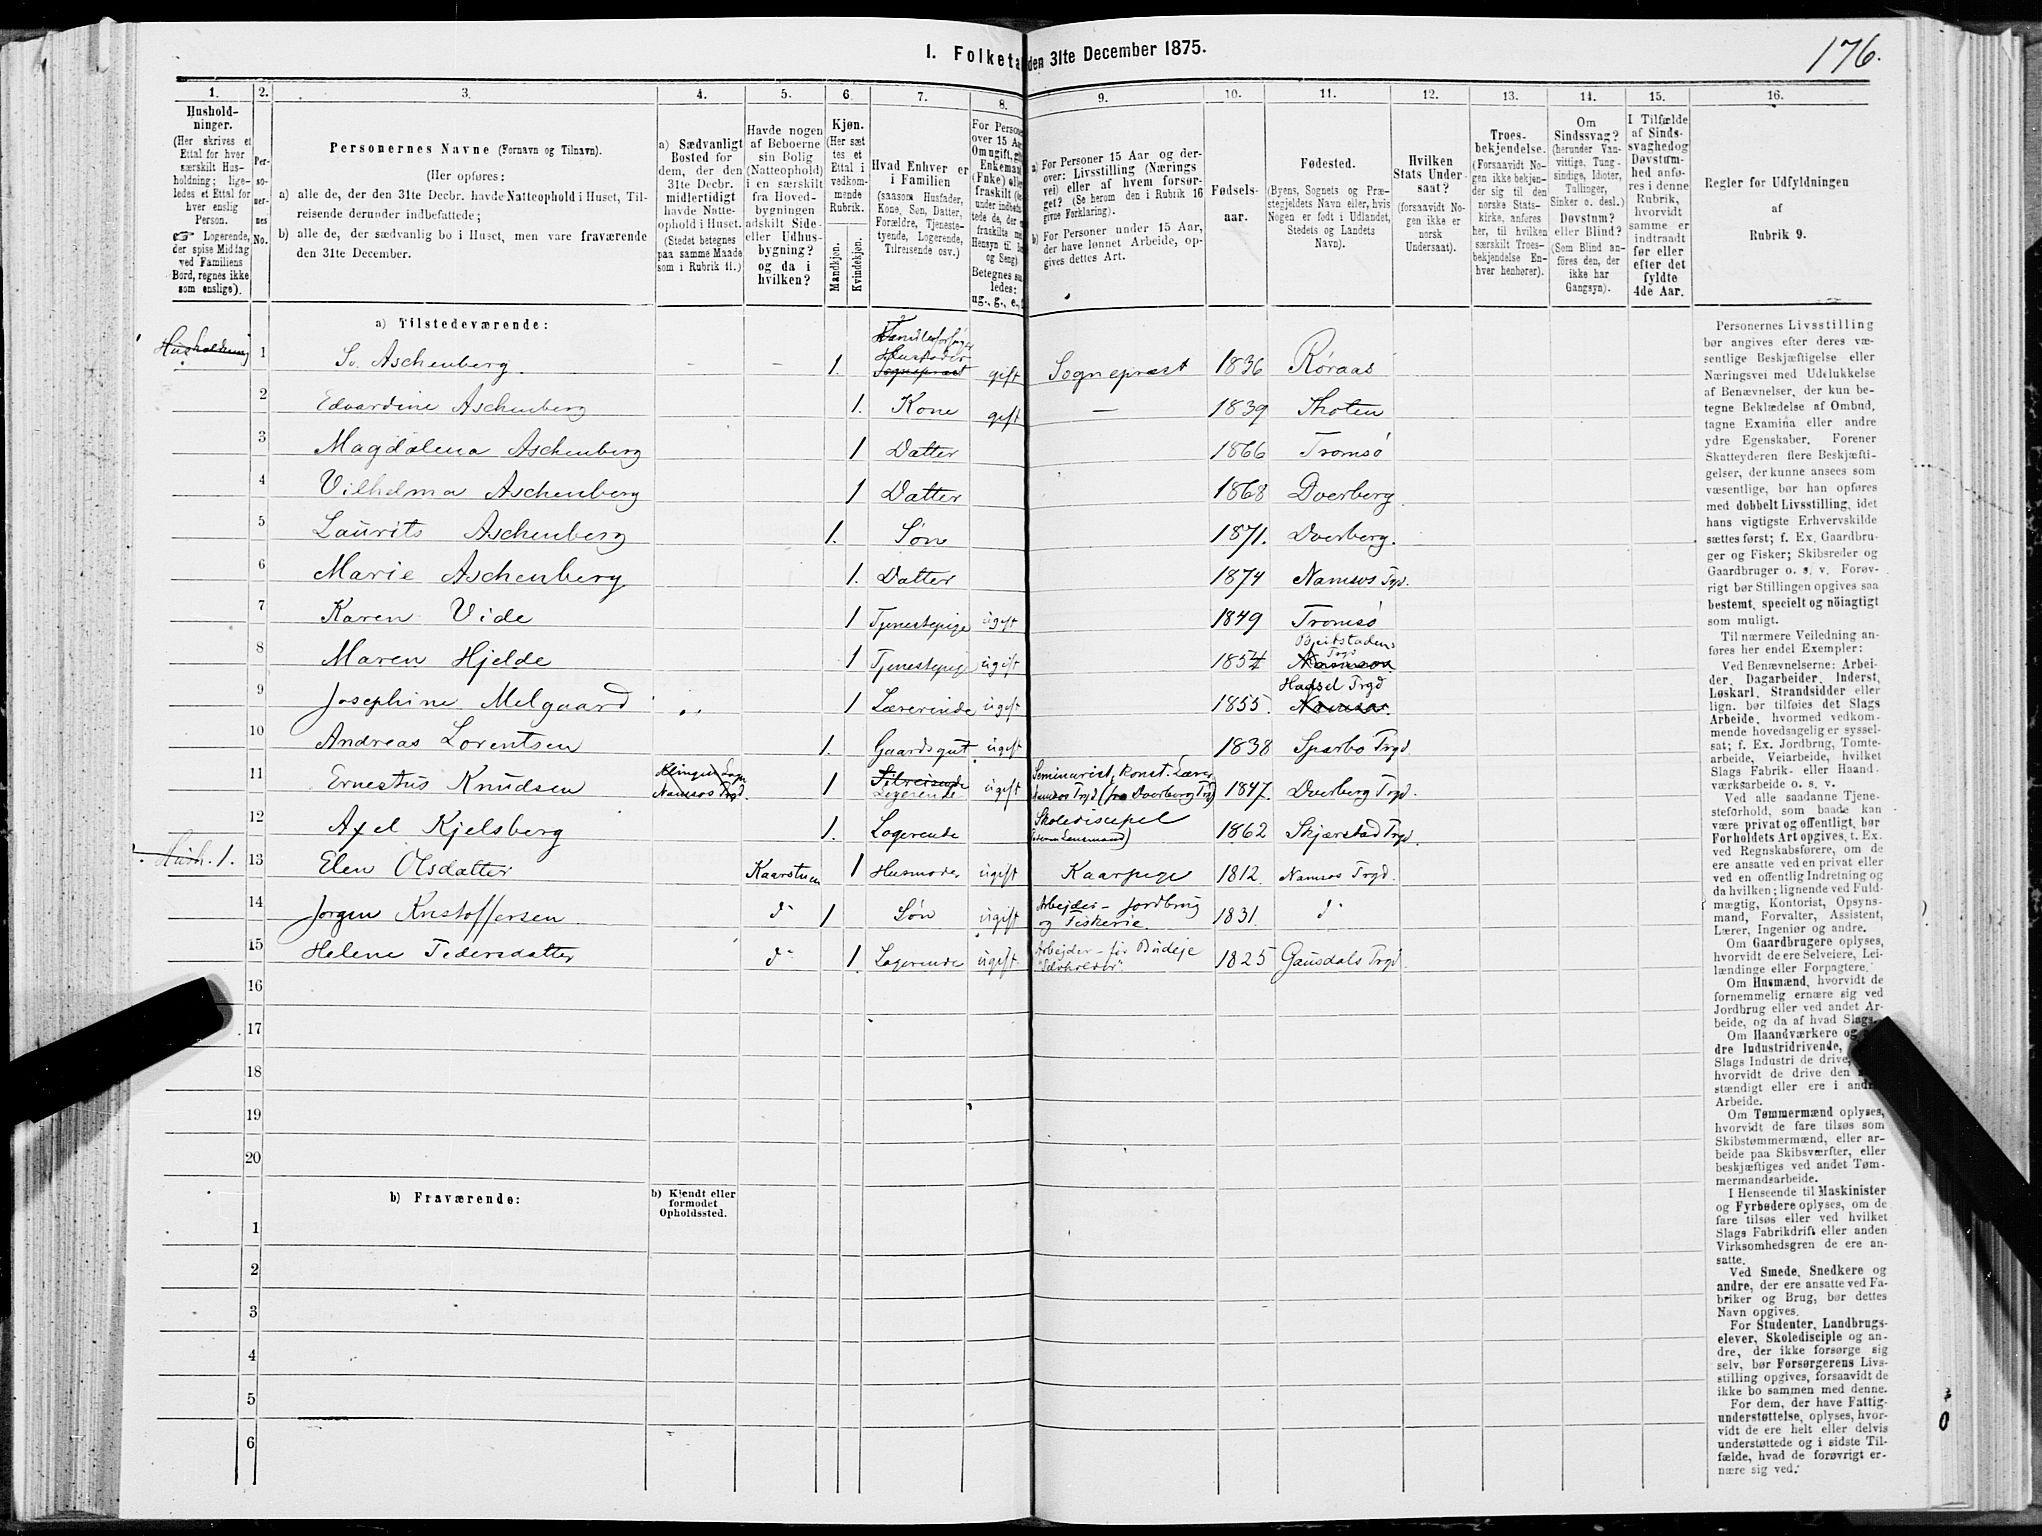 I. Folketæ
den 31te December 1875.
176.
1.
2.
3.
4.
5.
6
7.
8.
9.
10.
11.
12.
13.
14.
15.
16.
Hushold-
ninger.
(Her skrives et
Ettal for hver
særskilt Hus-
holdning; lige-
ledes et Ettal for
hver enslig
Person.
☞ Logerende,
der spise Middag
ved Familiens
Bord, regnes ikke
som enslige).
Per-
so-
ner-
nes
No.
Personernes Navne (Fornavn og Tilnavn).
(Her opføres:
a) alle de, der den 31te Decbr. havde Natteophold i Huset, Til-
reisende derunder indbefattede;
b) alle de, der sædvanlig bo i Huset, men vare fraværende
den 31te December.
a) Sædvanligt
Bosted for
dem, der den
31te Decbr.
midlertidigt
havde Natte-
ophold i Huset.
(Stedet betegnes
paa samme Maade
som i Rubrik 11.)
Havde nogen
af Beboerne
sin Bolig
(Natteophold)
i en særskilt
fra Hoved-
bygningen
adskilt Side-
eller Udhus-
bygning?
og da i
hvilken?
Kjøn.
(Her sæt-
tes et
Ettal i
vedkom-
mende
Rubrik.
Mandkjøn.
Kvindekjøn.
Hvad Enhver er
i Familien
(saasom Husfader,
Kone, Søn, Datter,
Forældre, Tjeneste-
tyende, Logerende,
Tilreisende osv.)
For Persone
over 15 Aa
Om ugift, gi
Enkeman
(Fuke) elle
fraskilt (se
under indbefa
tede de, der e
fraskilte me
Hensyn til B
og Seng)
Betegnes saa
ledes:
ug., g., e.,
a) For Personer 15 Aar og der-
over: Livsstilling (Nærings-
vei) eller af hvem forsør-
get? (Se herom den i Rubrik 16
givne Forklaring).
b) For Personer under 15 Aar,
der have lønnet Arbeide, op-
gives dettes Art.
Fødsels-
aar.
Fødested.
(Byens, Sognets og Præ-
stegjeldets Navn eller, hvis
Nogen er født i Udlandet,
Stedets og Landets
Navn).
Hvilken
Stats Under-
saat?
(forsaavidt No-
gen ikke er
norsk
Undersaat).
Troes-
bekjendelse.
(Forsaavidt No-
gen ikke bekjen-
der sig til den
norske Stats-
kirke, anføres
her, til hvilken
særskilt Troes-
bekjendelse En-
hver henhører).
Om
Sindssvag?
(herunder Van-
vittige, Tung-
sindige, Idioter,
Tullinger,
Sinker o. desl.)
Døvstum?
eller Blind?
(Som Blind an-
føres den, der
ikke har
Gangsyn).
I Tilfælde
af Sinds-
svaghed og
Døvstum-
hed anfø-
res i denne
Rubrik,
hvorvidt
samme er
indtraadt
før eller
efter det
fyldte
4de Aar.
Regler for Udfyldningen
af
Rubrik 9.
a) Tilstedeværende:
Husholdning 1 S. Aschenberg. - - 1. Familieforsørger Husfader Sogneprest gift Sogneprest 1836 Røraas
2 Edvardine Aschenberg 1. Kone gift — 1839 Thoten
3 Magdalena Aschenberg 1 Datter 1866 Tromsø
4 Vilhelma Aschenberg 1 Datter 1868 Dverberg.
5 Laurits Aschenberg 1. Søn 1871. Dverberg.
6 Marie Aschenberg 1. Datter 1874 Namsos Prgd.
7 Karen Vide 1 Tjenestepige ugift 1849 Tromsø
8 Maren Hjelde 1 Tjenestepige ugift 1854 Beitstadens Prgd Namsos
9 Josephine Melgaard 1 Lærerinde ugift 1855. Hadsel Prgd Namsos.
10 Andreas Lorentsen 1. Gaardsgut ugift 1838 Sparbo Prgd.
11 Ernestus Knudsen Klingen Sogn Namsos Prgd. 1 Tilreisende Logerende ugift Seminarist, konst. Lærer Namsos Prgd (fra Dverberg Prgd) 1847. Dverberg Prgd.
12 Axel Kjelsberg 1. Logerende Skolediscipel 1862 Skjærstad Prgd.
Hush. 1. 13 Elen Olsdatter Kaarstuen 1 Husmoder ugift Kaarpige 1812. Namsos Prgd.
14 Jørgen Kristoffersen d° 1 Søn ugift Arbejder - Jordbrug og Fiskerie. 1831. d°
15 Helene Pedersdatter d° 1. Logerende ugift Arbejder - før Budeje 1825 Gausdals Prgd.
16
17
18
19
20
b) Fraværende:
b) Kjendt eller
formodet
Opholdssted.
1
2
3
4
5
6
Personernes Livsstilling
bør angives efter deres væ-
sentlige Beskjæftigelse eller
Næringsvei med Udelukkelse
af Benævnelser, der kun be-
tegne Beklædelse af Ombud,
tagne Examina eller andre
ydre Egenskaber. Forener
Skatteyderen flere Beskjæfti-
gelser, der kunne ansees som
væsentlige, bør han opføres
med dobbelt Livsstilling, idet
hans vigtigste Erhvervskilde
sættes først; f. Ex. Gaardbru-
ger og Fisker; Skibsreder og
Gaardbruger o. s. v. Forøv-
rigt bør Stillingen opgives saa
bestemt, specielt og nöiagtigt
som muligt.
Til nærmere Veiledning an-
føres her endel Exempler:
Ved Benævnelserne: Arbei-
der, Dagarbeider, Inderst,
Løskarl, Strandsidder eller
lign. bør tilføies det Slags
Arbeide, hvormed vedkom-
mende hovedsagelig er syssel-
sat; f. Ex. Jordbrug, Tomte-
arbeide, Veiarbeide, hvilket
Slags Fabrik- eller Haand-
værksarbeide o. s. v.
Ved alle saadanne Tjene-
steforhold, som baade kan
være privat og offentligt, bør
Forholdets Art opgives, t. Ex.
ved Regnskabsførere, om de
ere ansatte ved en privat eller
ved en offentlig Indretning og
da hvilken; lignende ved Fuld-
mægtig, Kontorist, Opsyns-
mand, Forvalter, Assistent,
Lærer, Ingeniør og andre.
Om Gaardbrugere oplyses,
hvorvidt de ere Selveiere, Lei-
lændinge eller Forpagtere.
Om Husmænd, hvorvidt de
fornemmelig ernære sig ved
Jordbrug eller ved andet Ar-
beide, og da af hvad Slags.
Om Haandværkere og
dre Industridrivende,
Slags Industri de drive,
hvorvidt de drive den
stændigt eller ere i andr
Arbeide.
Om Tømmermænd oplyses,
hvorvidt de fare tilsøs som
Skibstømmermænd, eller ar-
beide paa Skibsværfter, eller
beskjæftiges ved andet Tøm-
mermandsarbeide.
I Henseende til Maskinister
og Fyrbødere oplyses, om de
fare tilsøs eller ved hvilket
Slags Fabrikdrift eller anden
Virksomhedsgren de ere an-
satte.
Ved Smede, Snedkere og
andre, der ere ansatte ved Fa-
briker og Brug, bør dettes
Navn opgives.
For Studenter, Landbrugs-
elever, Skoledisciple og an-
dre, der ikke forsørge sig
selv, bør Forsørgerens Livs-
stilling opgives, forsaavidt de
ikke bo sammen med denne.
For dem, der have Fattig-
understøttelse, oplyses, hvor-
vidt de ere helt eller delvis
understøttede og i sidste Til-
fælde, hvad de forøvrigt er-
nære sig ved.